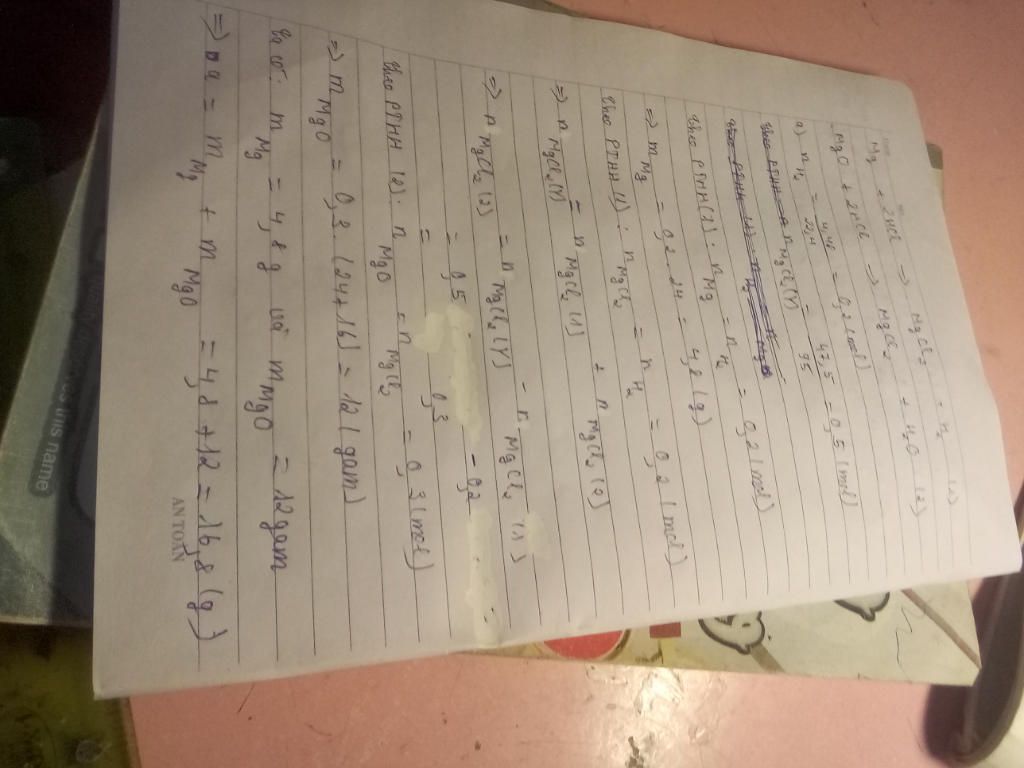 Mg + 2HCl => MgCl2 + H2 (1)
MgO + 2HCl => MgCl2 + H2O (2)
a) nH2 = 4,48/22,4 = 0,2 (mol)
nMgCl2(Y) = 47,5/95 = 0,5 (mol)
Theo PTHH (1): nMg = nH2 = 0,2 (mol)
=> mMg = 0,2 . 24 = 4,8 (g)
Theo PTHH (1): nMgCl2 = nH2 = 0,2 (mol)
=> nMgCl2(Y) = nMgCl2 (1) + nMgCl2 (2)
=> nMgCl2 (2) = nMgCl2 (Y) - nMgCl2 (1)
= 0,5 - 0,2
= 0,3
Theo PTHH (2): nMgO = nMgCl2 = 0,3 (mol)
=> mMgO = 0,3 (24+16) = 12 (gam)
Ta có: mMg = 4,8 g và mMgO = 12gam
=> a = mMg + mMgO = 4,8 + 12 = 16,8 (g)
ANTOAN
us this name